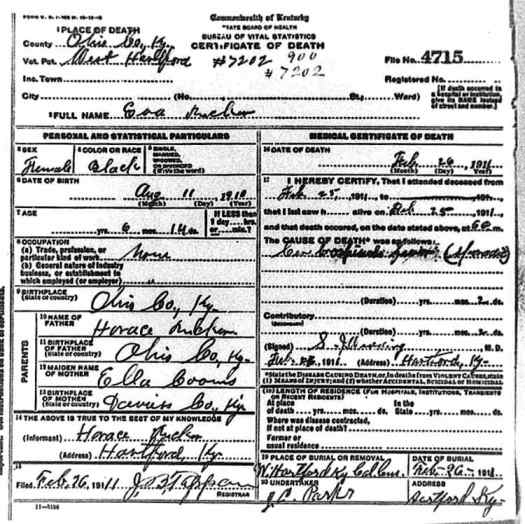 Commonwealth of Kentucky
STATE BOARD OF HEALTH
BUREAU OF VITAL STATISTICS
CERTIFICATE OF DEATH
1 PLACE OF DEATH
County Ohio Co, Ky.
Vot. Pct. West Hartford
#7202 900
#7202
File No. 4715
Inc. Town
Registered No.
City (No. St.; Ward)
[If death occurred in a hospital or institution, give its NAME instead of street and number.]
2 FULL NAME Eva
PERSONAL AND STATISTICAL PARTICULARS
3 SEX Female
4 COLOR OR RACE Black
5 SINGLE, MARRIED, WIDOWED, OR DIVORCED (Write the word)
6 DATE OF BIRTH
Aug 11 1910
(Month) (Day) (Year)
7 AGE
yrs. 6 mos. 14 ds.
If LESS than 1 day, ... hrs. or ... min.?
8 OCCUPATION
(a) Trade, profession, or particular kind of work None
(b) General nature of industry business, or establishment to which employed (or employer)
9 BIRTHPLACE
(State or country) Ohio Co, Ky.
PARENTS
10 NAME OF FATHER Horace
11 BIRTHPLACE OF FATHER (State or country) Ohio Co, Ky.
12 MAIDEN NAME OF MOTHER Ella Cooms
13 BIRTHPLACE OF MOTHER (State or country) Daviess Co, Ky
14 THE ABOVE IS TRUE TO THE BEST OF MY KNOWLEDGE
(Informant) Horace
(Address) Hartford, Ky.
15
Filed Feb. 26, 1911 REGISTRAR
11-3150
MEDICAL CERTIFICATE OF DEATH
16 DATE OF DEATH
Feb 26 1911
(Month) (Day) (Year)
17 I HEREBY CERTIFY, That I attended deceased from
Feb 25, 1911, to , 191 ,
that I last saw h alive on Feb 25, 1911,
and that death occurred, on the date stated above, at 6 a m.
The CAUSE OF DEATH* was as follows:
(Duration) yrs. mos. ds.
Contributory
(Secondary)
(Duration) yrs. mos. ds.
(Signed) M. D.
Feb. 26, 1911 (Address) Hartford, Ky.
*State the DISEASE CAUSING DEATH, or, in deaths from VIOLENT CAUSES, state (1) MEANS OF INJURY; and (2) whether ACCIDENTAL, SUICIDAL or HOMICIDAL
18 LENGTH OF RESIDENCE (FOR HOSPITALS, INSTITUTIONS, TRANSIENTS OR RECENT RESIDENTS)
At place of death yrs. mos. ds. In the State yrs. mos. ds.
Where was disease contracted, if not at place of death?
Former or usual residence
19 PLACE OF BURIAL OR REMOVAL
W. Hartford Ky
DATE OF BURIAL
Feb. 26, 1911
20 UNDERTAKER
J. C. Parks
ADDRESS
Hartford Ky.